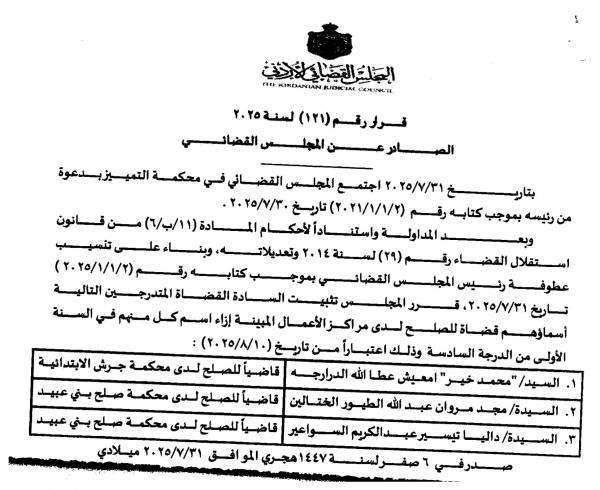 المجلس القضائي الأردني
THE JORDANIAN JUDICIAL COUNCIL
قرار رقم (١٢١) لسنة ٢٠٢٥
الصادر عن المجلس القضائي
بتاريخ ٢٠٢٥/٧/٣١ اجتمع المجلس القضائي في محكمة التمييز بدعوة
من رئيسه بموجب كتابه رقم (٢٠٢١/١/١/٢) تاريخ ٢٠٢٥/٧/٣٠ .
وبعد المداولة واستناداً لأحكام المادة (١١/ب/٦) من قانون
استقلال القضاء رقم (٢٩) لسنة ٢٠١٤ وتعديلاته، وبناء على تنسيب
عطوفة رئيس المجلس القضائي بموجب كتابه رقم (٢٠٢٥/١/١/٢)
تاريخ ٢٠٢٥/٧/٣١، قرر المجلس تثبيت السادة القضاة المتدرجين التالية
أسماؤهم قضاة للصلح لدى مراكز الأعمال المبينة إزاء اسم كل منهم في السنة
الأولى من الدرجة السادسة وذلك اعتباراً من تاريخ (٢٠٢٥/٨/١٠) :
١. السيد/ "محمد خير" امعيش عطا الله الدرارجه قاضياً للصلح لدى محكمة جرش الابتدائية
٢. السيدة/ مجد مروان عبد الله الطيور الختالين قاضياً للصلح لدى محكمة صلح بني عبيد
٣. السيدة/ داليا تيسير عبدالكريم السواعير قاضياً للصلح لدى محكمة صلح بني عبيد
صدر في ٦ صفر لسنة ١٤٤٧ هجري الموافق ٢٠٢٥/٧/٣١ ميلادي